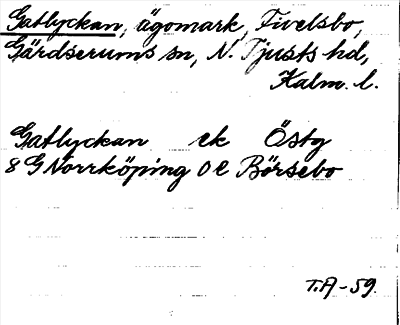 Gatlyckan, ägomark, Fivelsbo,
Gärdserums sn, N. Tjusts hd,
Kalm. l.
Gatlyckan ek Östg
8 G Norrköping 0 e Börsebo
T.A-59.